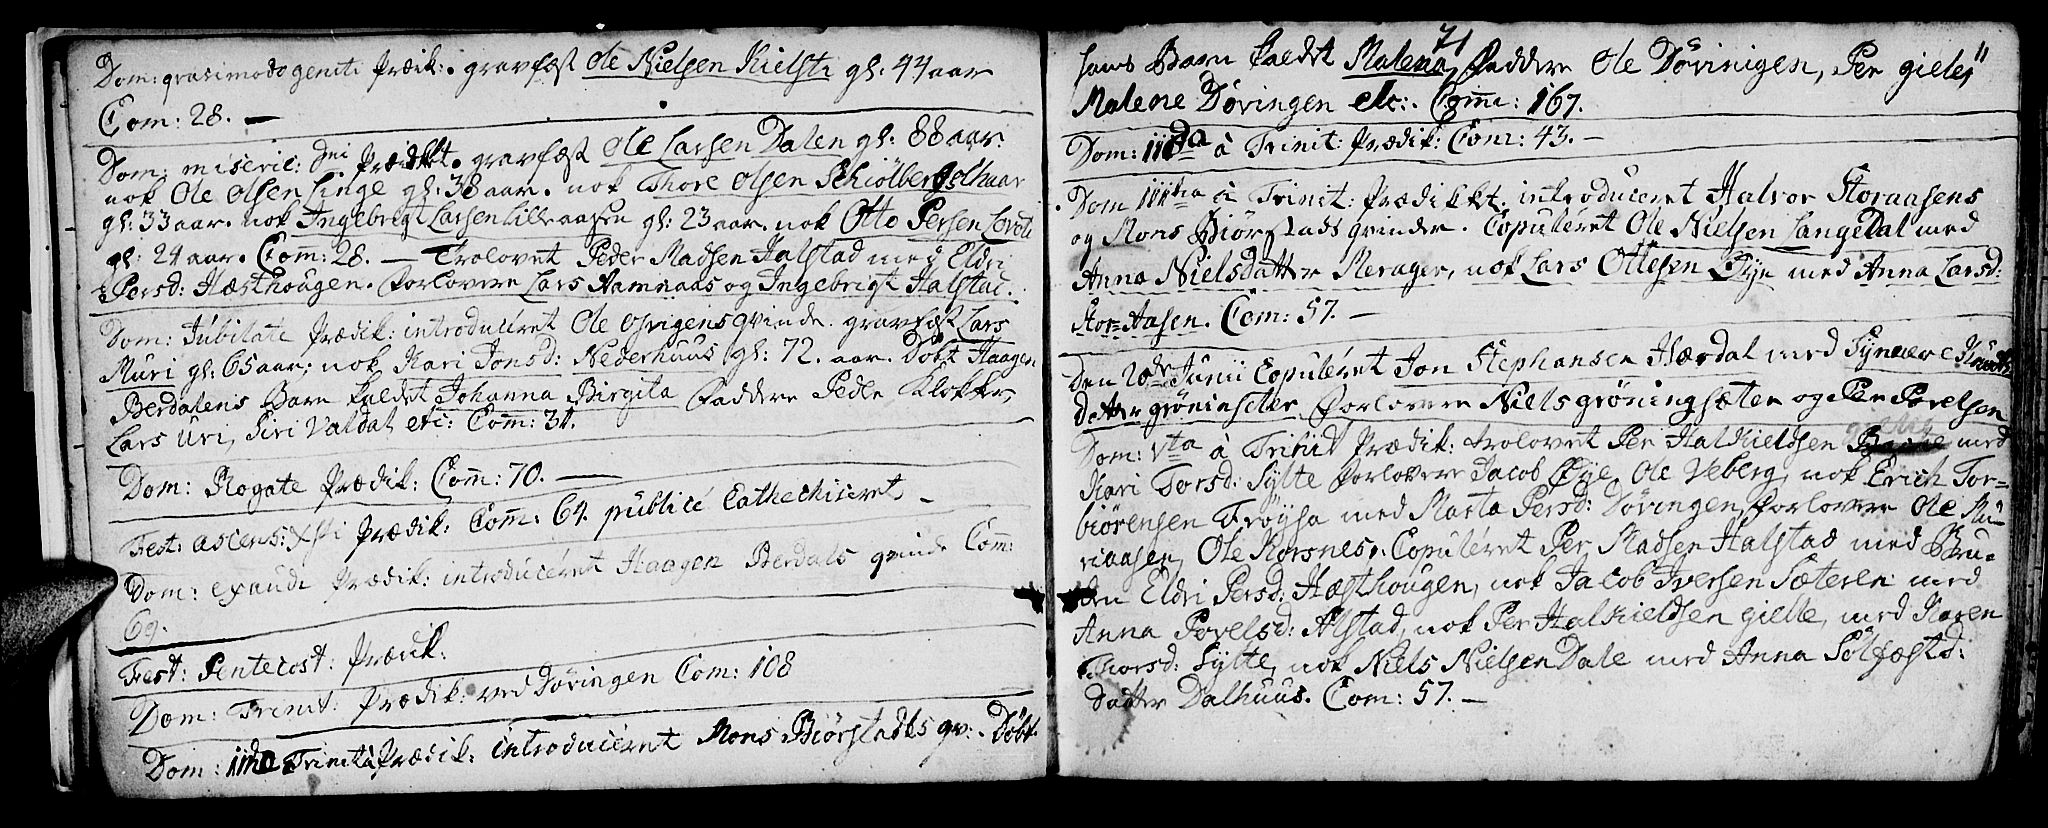 Dom: qvasimodogeniti Prædik: gravfæst Ole Nielsen Kielsti gl: 44 aar
Com: 28. —
Dom: miseric: dni Prædikkt. gravfæst Ole Larsen Dalen gl: 88 aar.
nok Ole Olsen Linge gl: 38 aar. nok Thore Olsen Schiølbergsolhaar
gl: 33 aar. nok Ingebrigt Larsen Lilleaasen gl: 23 aar. nok Otto Persen Lovoli
gl: 24 aar. Com̄: 28. — Trolovet Peder Madsen Halstad med Eldri
Persd: Hæsthougen. Forlovere Lars Ramnaas og Ingebrigt Halstad.
Dom: Jubilate Prædik: introduceret Ole Osvigens qvinde. gravfæst Lars
Muri gl: 65 aar; nok Kari Jonsd: Nederhuus gl: 72. aar. Döbt Haagen
Berdalens Barn kaldet Johanna Birgita Faddere Peder Klokker,
Lars Uri, Siri Valdal etc: Com̄: 31.
Dom: Rogate Prædik: Com̄: 70. —
Fest: ascens: Xsti Prædik: Com̄: 64. publicé Cathechiseret —
Dom: exaudi Prædik: introduceret Haagen Berdals qvinde Com̄:
69.
Fest: Pentecost: Prædik:
Dom: Trinit: Prædik: ved Dövingen Com: 108
Dom: IIda Trinit: Prædik: introduceret Mons Biørstadks qv: Döbt
71
hans Barn kaldet Malena, Faddere Ole Dövingen, Per gielle,
Malene Dövingen etc:. Com̄: 167.
Dom: IIIda à Trinit: Prædik: Com: 43. —
Dom IIIItia à Trinit: Prædikkt. introduceret Halvor Storaasens
og Mons Biørstads qvinder. Copuleret Ole Nielsen Langedal med
Anna Nielsdatter Merager, nok Lars Ottesen Øye med Anna Larsd:
Stor=Aasen. Com: 57. —
Den 20de Junii Copuleret Jon Stephansen Hærdal med Synnere Knuds
datter gröningseter Forlovere Niels gröningsæter og Per Povelsen
Dom: Vta à Trinit Prædik: trolovet Per Halkieldsen med
Kari Torsd: Sylte Forlovere Jacob Øye, Ole Veberg, nok Erich Tor=
biørensen Frøysa med Marta Persd: Dövingen, Forlovere Ole Mu=
riaasen, Ole Korsnes. Copuleret Per Madsen Halstad med Bru=
den Eldri Persd: Hæsthougen, nok Jacob Iversen Sæteren med
Anna Povelsd: Alstad, nok Per Halkieldsen gielle, med Karen
Thorsd: Sylte, nok Niels Nielsen Dale med Anna Sölfæstd:
datter Dalhuus. Com: 57. —